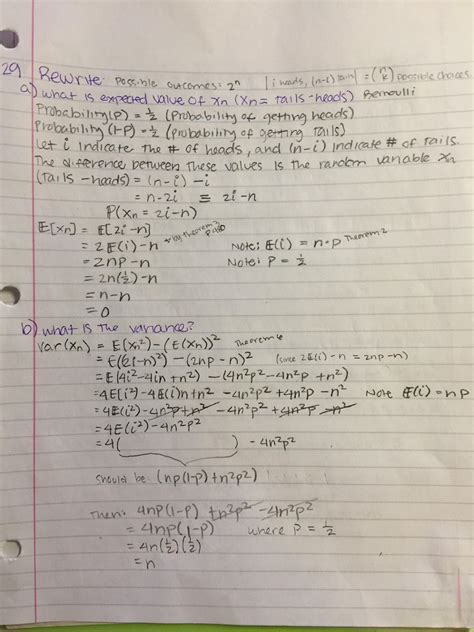 29 Rewrite: Possible outcomes = 2^n | i heads, (n-i) tails | = (n k) possible choices
a) what is expected value of Xn (Xn = tails - heads) Bernoulli
Probability (P) = 1/2 (Probability of getting heads)
Probability (1-P) = 1/2 (probability of getting tails)
Let i indicate the # of heads, and (n-i) indicate # of tails.
The difference between these values is the random variable Xn
(tails - heads) = (n-i) - i
= n-2i ≡ 2i-n
P(Xn = 2i-n)
E[Xn] = E[2i-n]
= 2E(i)-n * by theorem 3 Note: E(i) = n·p Theorem 2
= 2np-n Note: P = 1/2
= 2n(1/2)-n
= n-n
= 0
b) what is the variance?
Var(Xn) = E(Xn²) - (E(Xn))² Theorem 6
= E((2i-n)²) - (2np-n)² (since 2E(i)-n = 2np-n)
= E(4i²-4in+n²) - (4n²p²-4n²p+n²)
= 4E(i²)-4E(i)n+n² -4n²p²+4n²p-n² Note E(i) = np
= 4E(i²)-4n²p+n² -4n²p²+4n²p-n²
= 4E(i²)-4n²p²
= 4( ) - 4n²p²
should be (np(1-p)+n²p²)
Then: 4np(1-p) +n²p² -4n²p²
= 4np(1-p) where P = 1/2
= 4n(1/2)(1/2)
= n